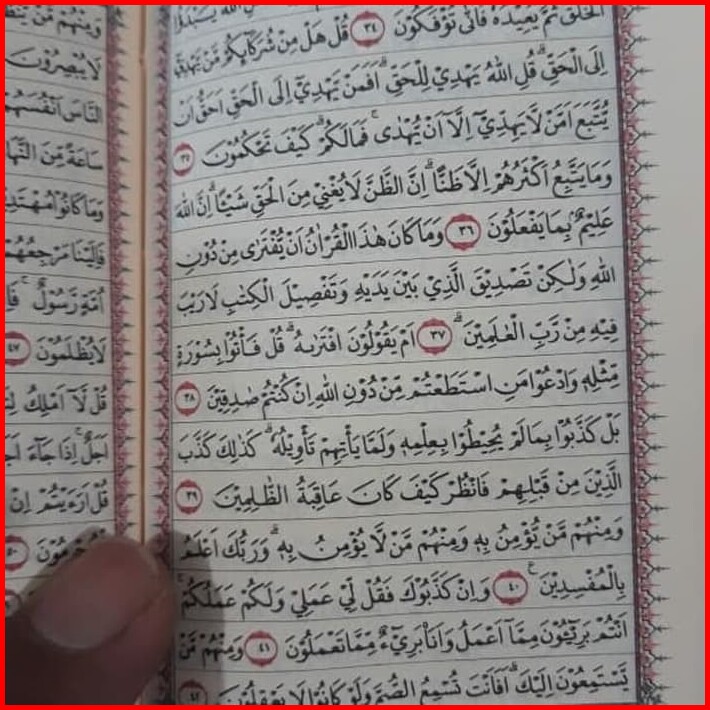 الْخَلْقَ ثُمَّ يُعِيْدُهٗ فَاَنّٰى تُؤْفَكُوْنَ ٣٤ قُلْ هَلْ مِنْ شُرَكَاۤىِٕكُمْ مَّنْ يَّهْدِيْٓ
اِلَى الْحَقِّۗ قُلِ اللّٰهُ يَهْدِيْ لِلْحَقِّۗ اَفَمَنْ يَّهْدِيْٓ اِلَى الْحَقِّ اَحَقُّ اَنْ
يُّتَّبَعَ اَمَّنْ لَّا يَهِدِّيْٓ اِلَّآ اَنْ يُّهْدٰىۚ فَمَا لَكُمْۗ كَيْفَ تَحْكُمُوْنَ ٣٥
وَمَا يَتَّبِعُ اَكْثَرُهُمْ اِلَّا ظَنًّاۗ اِنَّ الظَّنَّ لَا يُغْنِيْ مِنَ الْحَقِّ شَيْـًٔاۗ اِنَّ اللّٰهَ
عَلِيْمٌۢ بِمَا يَفْعَلُوْنَ ٣٦ وَمَا كَانَ هٰذَا الْقُرْاٰنُ اَنْ يُّفْتَرٰى مِنْ دُوْنِ
اللّٰهِ وَلٰكِنْ تَصْدِيْقَ الَّذِيْ بَيْنَ يَدَيْهِ وَتَفْصِيْلَ الْكِتٰبِ لَا رَيْبَ
فِيْهِ مِنْ رَّبِّ الْعٰلَمِيْنَۗ ٣٧ اَمْ يَقُوْلُوْنَ افْتَرٰىهُۗ قُلْ فَأْتُوْا بِسُوْرَةٍ
مِّثْلِهٖ وَادْعُوْا مَنِ اسْتَطَعْتُمْ مِّنْ دُوْنِ اللّٰهِ اِنْ كُنْتُمْ صٰدِقِيْنَ ٣٨
بَلْ كَذَّبُوْا بِمَا لَمْ يُحِيْطُوْا بِعِلْمِهٖ وَلَمَّا يَأْتِهِمْ تَأْوِيْلُهٗۗ كَذٰلِكَ كَذَّبَ
الَّذِيْنَ مِنْ قَبْلِهِمْ فَانْظُرْ كَيْفَ كَانَ عَاقِبَةُ الظّٰلِمِيْنَ ٣٩
وَمِنْهُمْ مَّنْ يُّؤْمِنُ بِهٖ وَمِنْهُمْ مَّنْ لَّا يُؤْمِنُ بِهٖۗ وَرَبُّكَ اَعْلَمُ
بِالْمُفْسِدِيْنَ ࣖ ٤٠ وَاِنْ كَذَّبُوْكَ فَقُلْ لِّيْ عَمَلِيْ وَلَكُمْ عَمَلُكُمْۚ
اَنْتُمْ بَرِيْۤـُٔوْنَ مِمَّآ اَعْمَلُ وَاَنَا۠ بَرِيْۤءٌ مِّمَّا تَعْمَلُوْنَ ٤١ وَمِنْهُمْ مَّنْ
يَّسْتَمِعُوْنَ اِلَيْكَۗ اَفَاَنْتَ تُسْمِعُ الصُّمَّ وَلَوْ كَانُوْا لَا يَعْقِلُوْنَ ٤٢
وَمِنْهُمْ مَّنْ
لَا يُبْصِرُوْنَ
النَّاسَ اَنْفُسَهُمْ
سَاعَةً مِّنَ النَّهَارِ
وَمَا كَانُوْا مُهْتَدِيْنَ
فَاِلَيْنَا مَرْجِعُهُمْ
اُمَّةٍ رَّسُوْلٌۚ
لَا يُظْلَمُوْنَ ٤٧
قُلْ لَّآ اَمْلِكُ
اَجَلٌۚ اِذَا جَاۤءَ
قُلْ اَرَءَيْتُمْ اِنْ